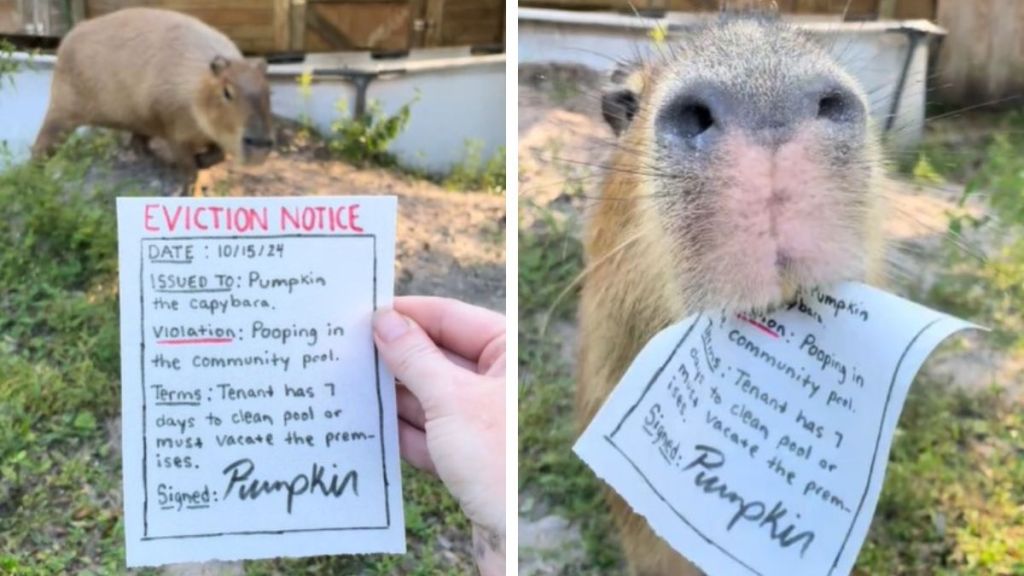 EVICTION NOTICE
DATE : 10/15/24
ISSUED TO: Pumpkin
the capybara.
Violation: Pooping in
the community pool.
Terms: Tenant has 7
days to clean pool or
must vacate the prem-
ises.
Signed: Pumpkin
Pumpkin
bara.
ion: Pooping in
community pool.
Terms: Tenant has 7
days to clean pool or
must vacate the prem-
ises.
Signed: Pumpkin